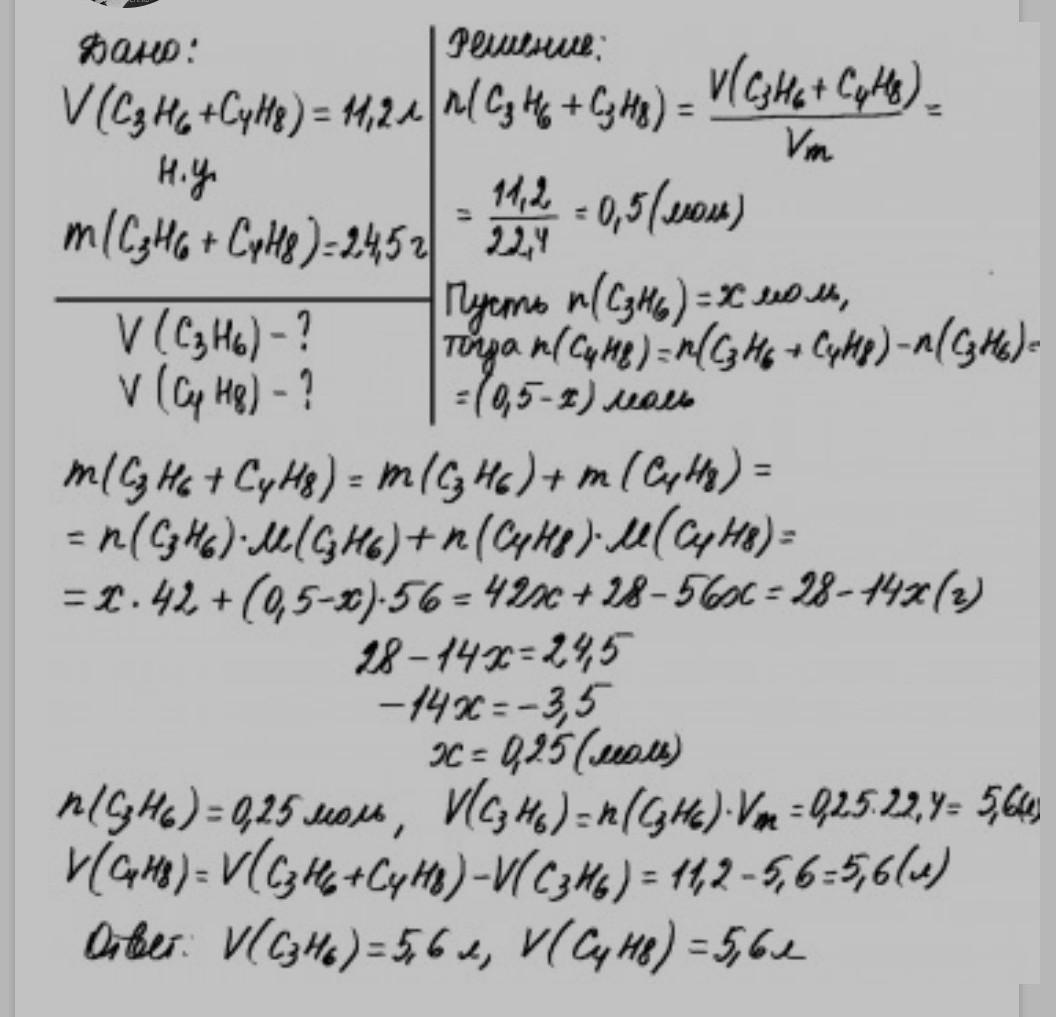 Дано:
V(C₃H₆+C₄H₈)=11,2л
н.у.
m(C₃H₆+C₄H₈)=24,5г
V(C₃H₆)-?
V(C₄H₈)-?
Решение:
n(C₃H₆+C₃H₈) = V(C₃H₆+C₄H₈)/Vm =
= 11,2/22,4 = 0,5(моль)
Пусть n(C₃H₆)=x моль,
тогда n(C₄H₈)=n(C₃H₆+C₄H₈)-n(C₃H₆)=
=(0,5-x) моль
m(C₃H₆+C₄H₈)=m(C₃H₆)+m(C₄H₈)=
=n(C₃H₆)·M(C₃H₆)+n(C₄H₈)·M(C₄H₈)=
=x·42+(0,5-x)·56=42x+28-56x=28-14x(г)
28-14x=24,5
-14x=-3,5
x=0,25(моль)
n(C₃H₆)=0,25 моль, V(C₃H₆)=n(C₃H₆)·Vm=0,25·22,4=5,6(л)
V(C₄H₈)=V(C₃H₆+C₄H₈)-V(C₃H₆)=11,2-5,6=5,6(л)
Ответ: V(C₃H₆)=5,6 л, V(C₄H₈)=5,6л